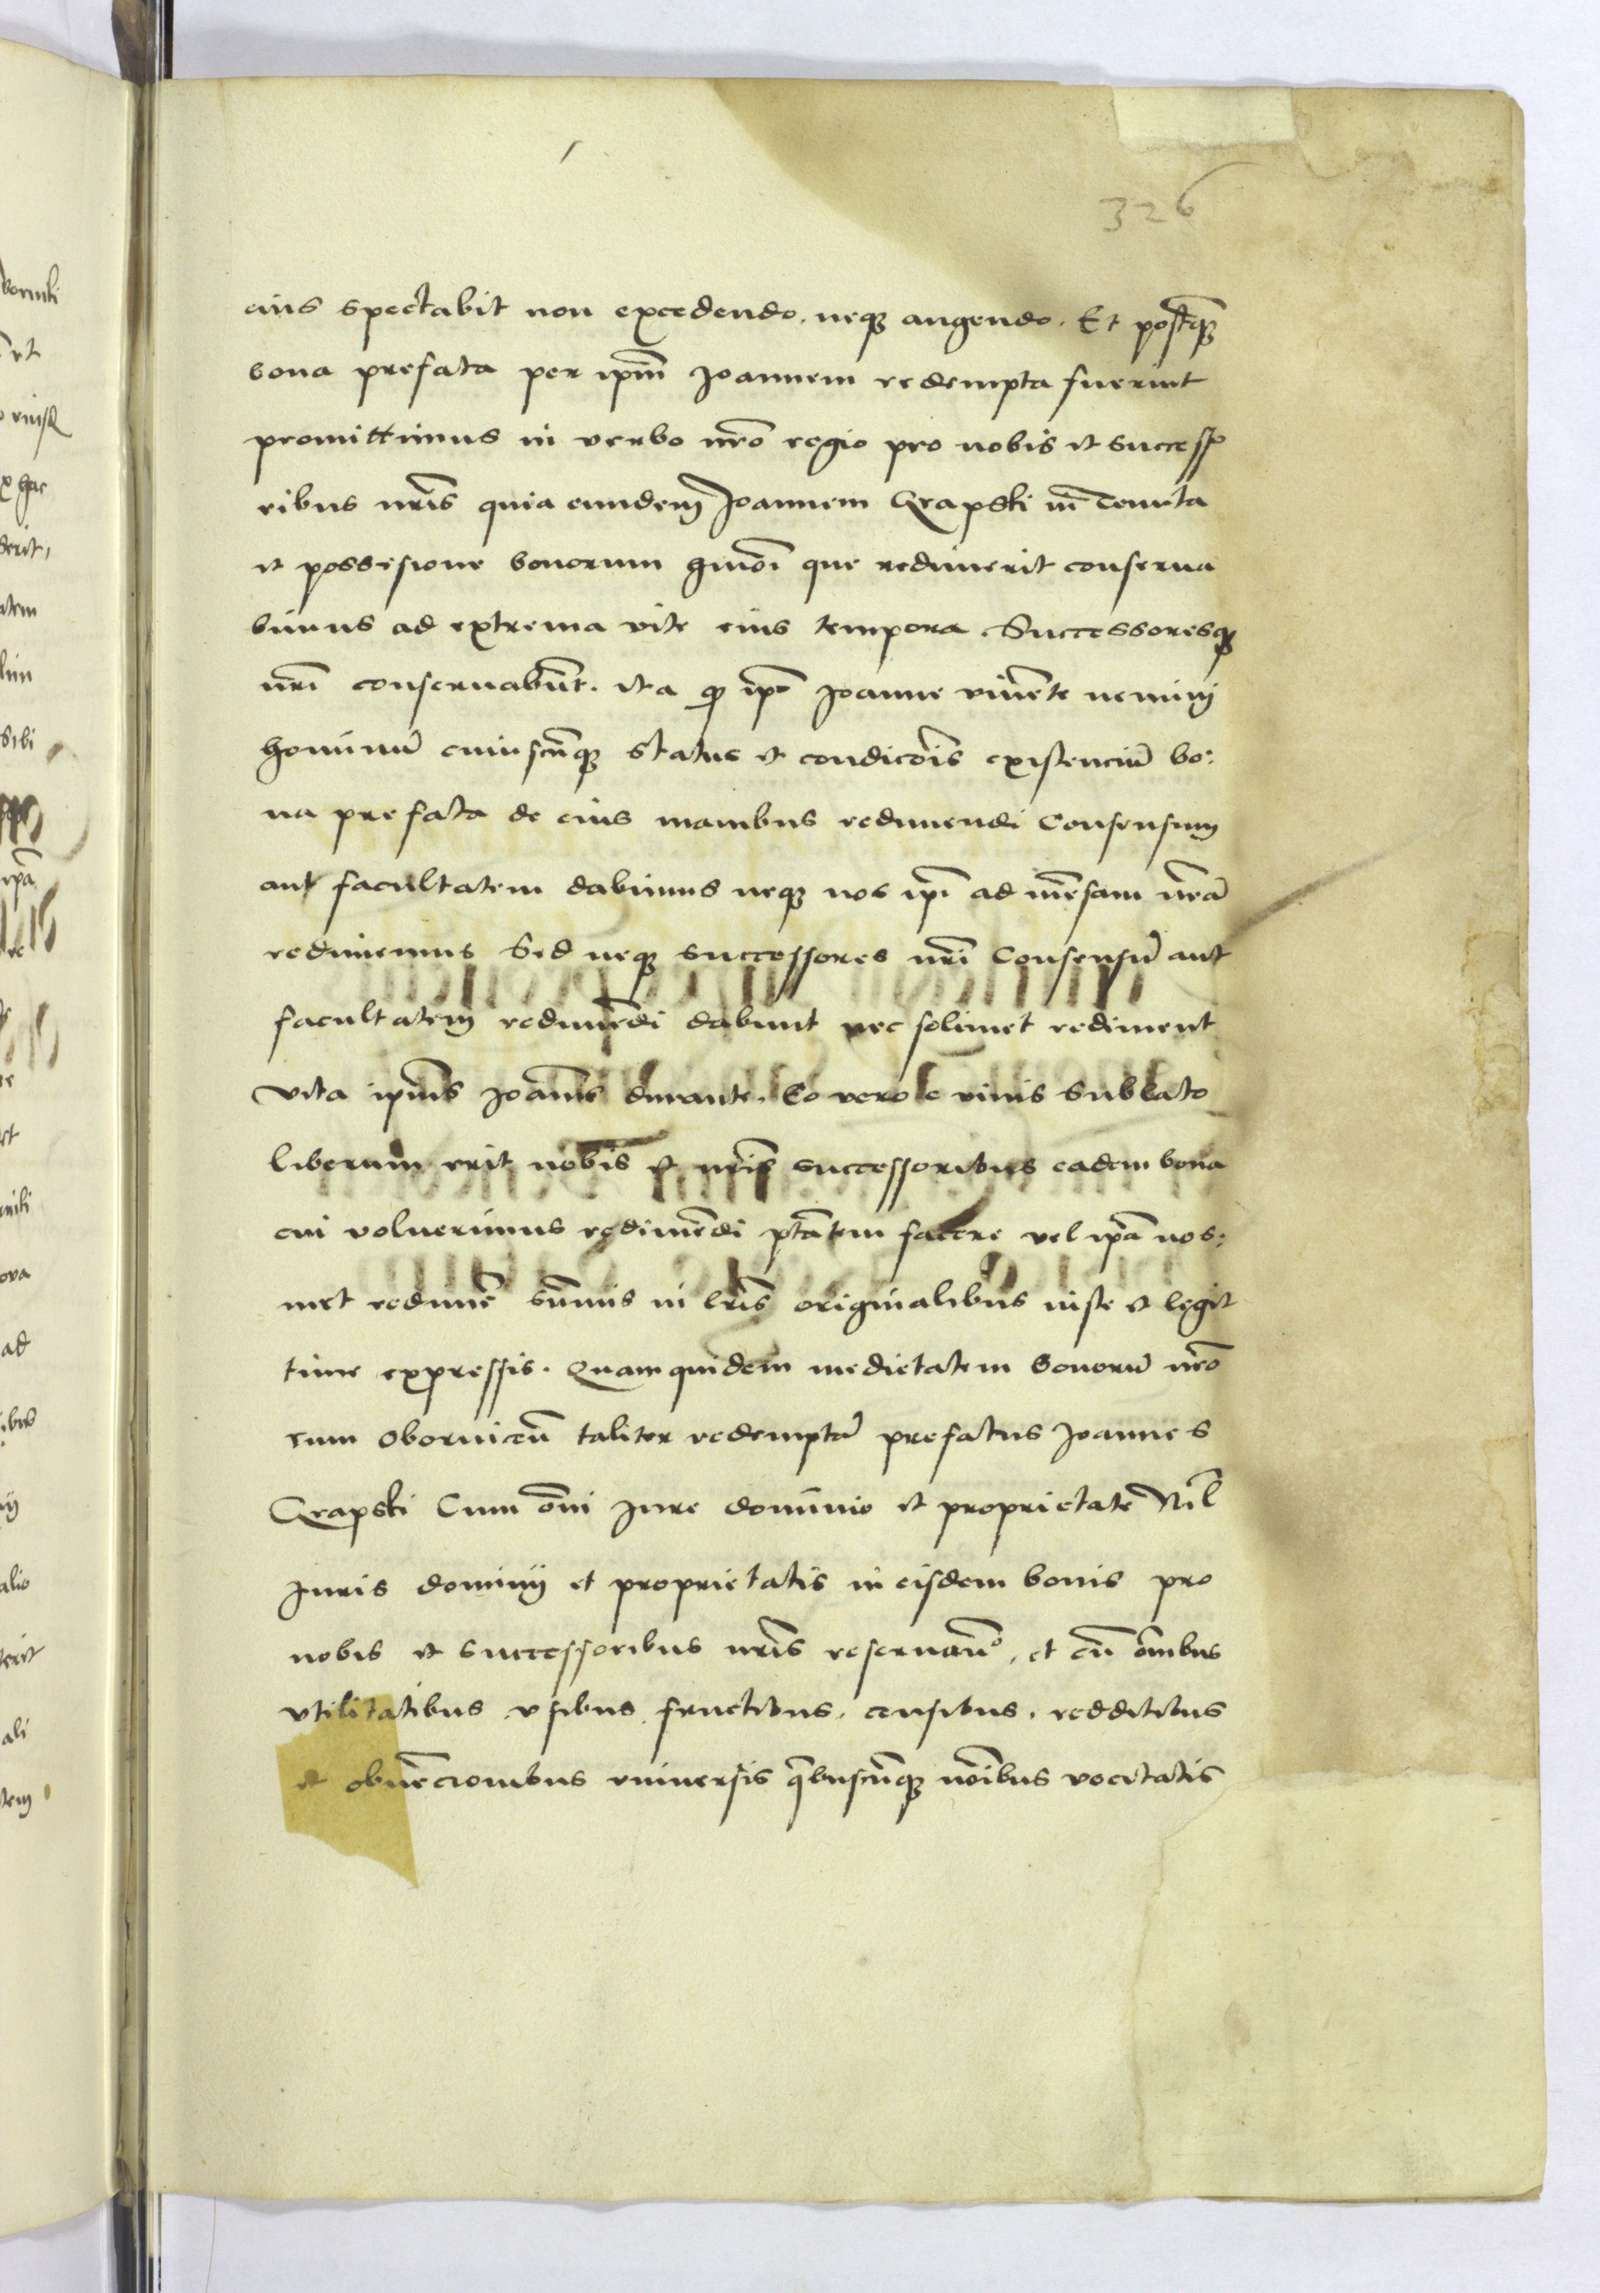 326
eius spectabit non excedendo. neque augendo. Et postq̃
bona prefata per ip̃m Joannem redempta fuerint
promittimus in verbo nr̃o regio pro nobis et successo
ribus nr̃is quia eundem Joannem Grapski in tenuta
et possesione bonorum hmõi que redimerit conserua
bimus ad extrema vite eius tempora. Successoresq
nr̃i conseruabũt. ita q ip̃o Joanne viuẽte nemini
hominũ cuiuscũque status et condicõis existenciũ bo:
na prefata de eius manibus redimendi Consensum
aut facultatem dabimus neque nos ip̃i ad mẽsam nr̃ã
redimemus Sed neque successores nr̃i Consensũ aut
facultatem redimẽdi dabunt nec solimet rediment
vita ip̃ius Joãnis durante. Eo vero e viuis sublato
liberum erit nobis et nr̃is successoribus eadem bona
cui voluerimus redimẽdi pt̃atem facere vel ip̃a nos:
met redimẽ sũmis in lr̃is originalibus iuste et legit
time expressis. Quamquidem medietatem bonorũ nr̃o
rum Obornicẽn taliter redemptã prefatus Joannes
Grapski Cum õni Jure dominio et proprietate Nil
Juris dominij et proprietatis in eisdem bonis pro
nobis et successoribus nr̃is reseruan̄o, et cũ õnibus
vtilitatibus vsibus fructibus. censibus. redditibus
et obuẽcionibus vniuersis q̃buscũque nõibus vocitatis